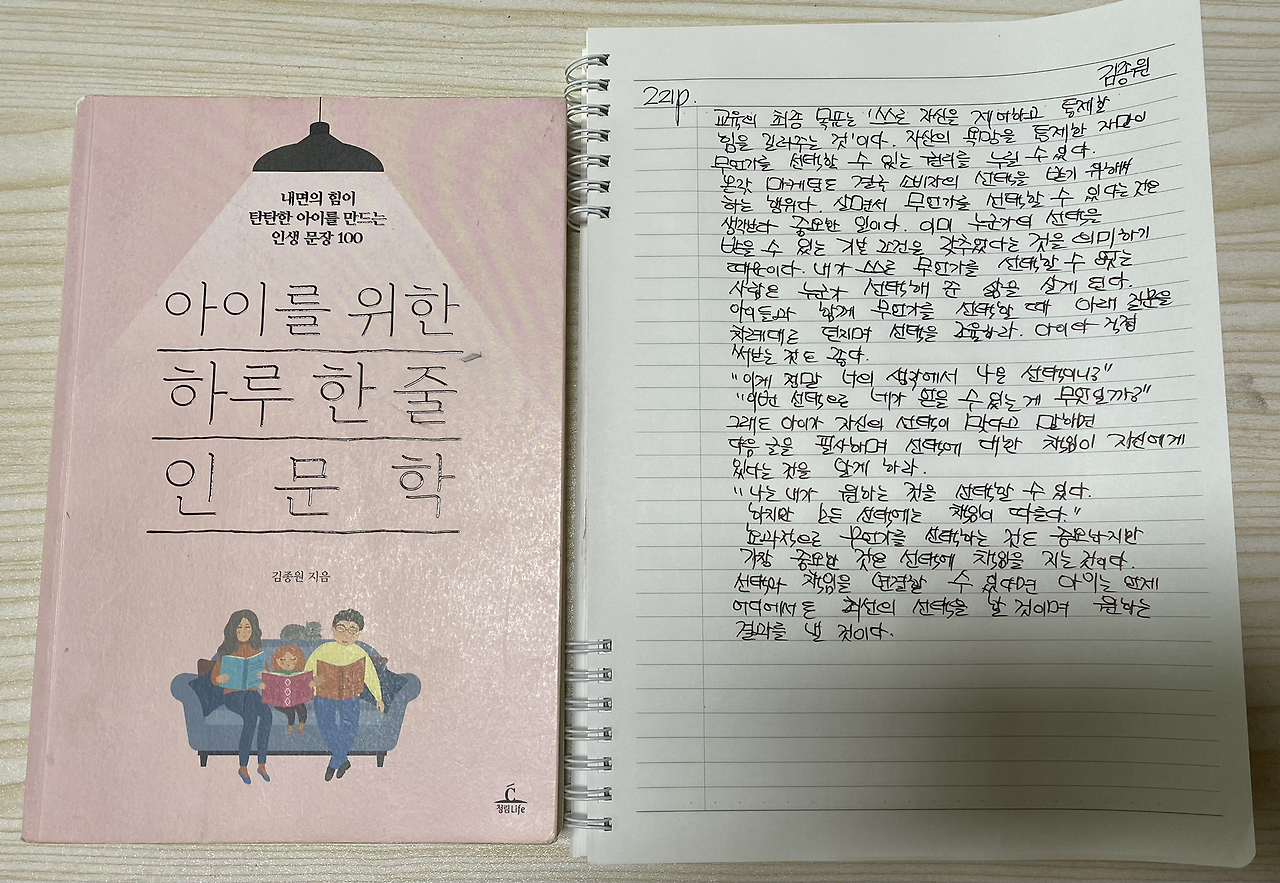 내면의 힘이
탄탄한 아이를 만드는
인생 문장 100
아이를 위한
하루 한 줄
인문학
김종원 지음
청림Life
김종원
221p.
교육의 최종 목표는 '스스로 자신을 제어하고 통제할
힘을 길러주는 것'이다. 자신의 욕망을 통제한 자만이
무언가를 선택할 수 있는 권리를 누릴 수 있다.
온갖 마케팅도 결국 소비자의 선택을 받기 위해서
하는 행위다. 살면서 무언가를 선택할 수 있다는 것은
생각보다 중요한 일이다. 이미 누군가의 선택을
받을 수 있는 기본 조건을 갖추었다는 것을 의미하기
때문이다. 내가 스스로 무언가를 선택할 수 없는
사람은 누군가 선택해 준 삶을 살게 된다.
아이들과 함께 무언가를 선택할 때 아래 질문을
차례대로 던지며 선택을 조율하라. 아이가 직접
써보는 것도 좋다.
"이게 정말 너의 생각에서 나온 선택이니?"
"이번 선택으로 네가 얻을 수 있는 게 무엇일까?"
그래도 아이가 자신의 선택이 맞다고 말하면
다음 글을 필사하며 선택에 대한 책임이 자신에게
있다는 것을 알게 하라.
"나는 내가 원하는 것을 선택할 수 있다.
하지만 모든 선택에는 책임이 따른다."
효과적으로 무언가를 선택하는 것도 중요하지만
가장 중요한 것은 선택에 책임을 지는 것이다.
선택과 책임을 연결할 수 있다면 아이는 언제
어디에서도 최선의 선택을 할 것이며 원하는
결과를 낼 것이다.